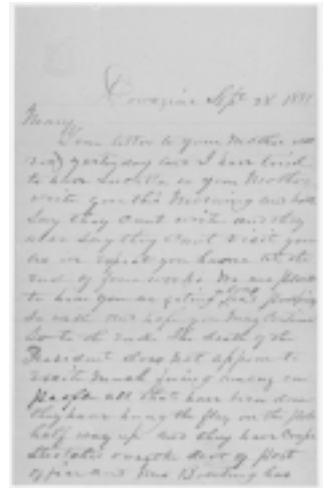 Sept 28 1881
Mary
Your letter to your Mother was
yesterday and I have tried
to have in your Mother
write you this Morning and both
Say they cant write and they
also Say they Can't visit you
as we expect you home at the
end of four weeks We are pleased
to hear you are getting along
So well and hope you may Continue
So to the end. The death of the
President does not appear to
excite much feeling among our
people all that have been done
they have hung the flag on the pole
half way up and they have Crape
over the door of post
office and Mrs has